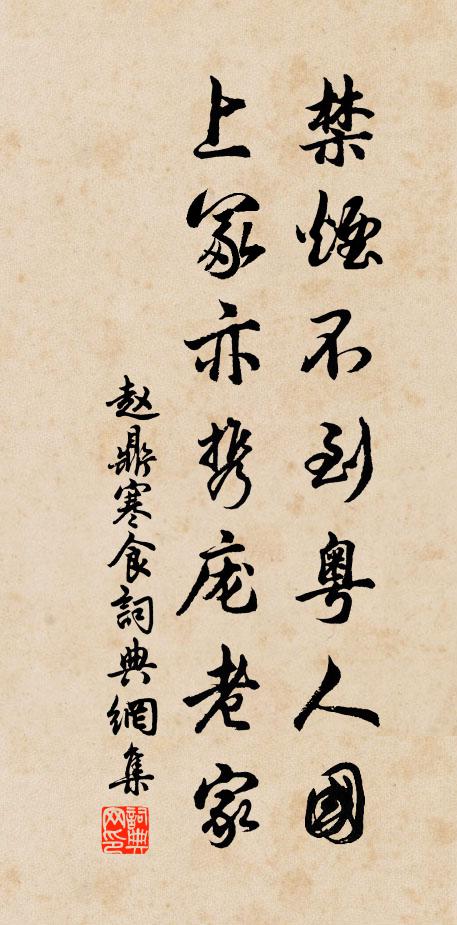 禁煙不到粤人國
上冢亦携庞老家
赵鼎寒食詞典網集
詞典网印